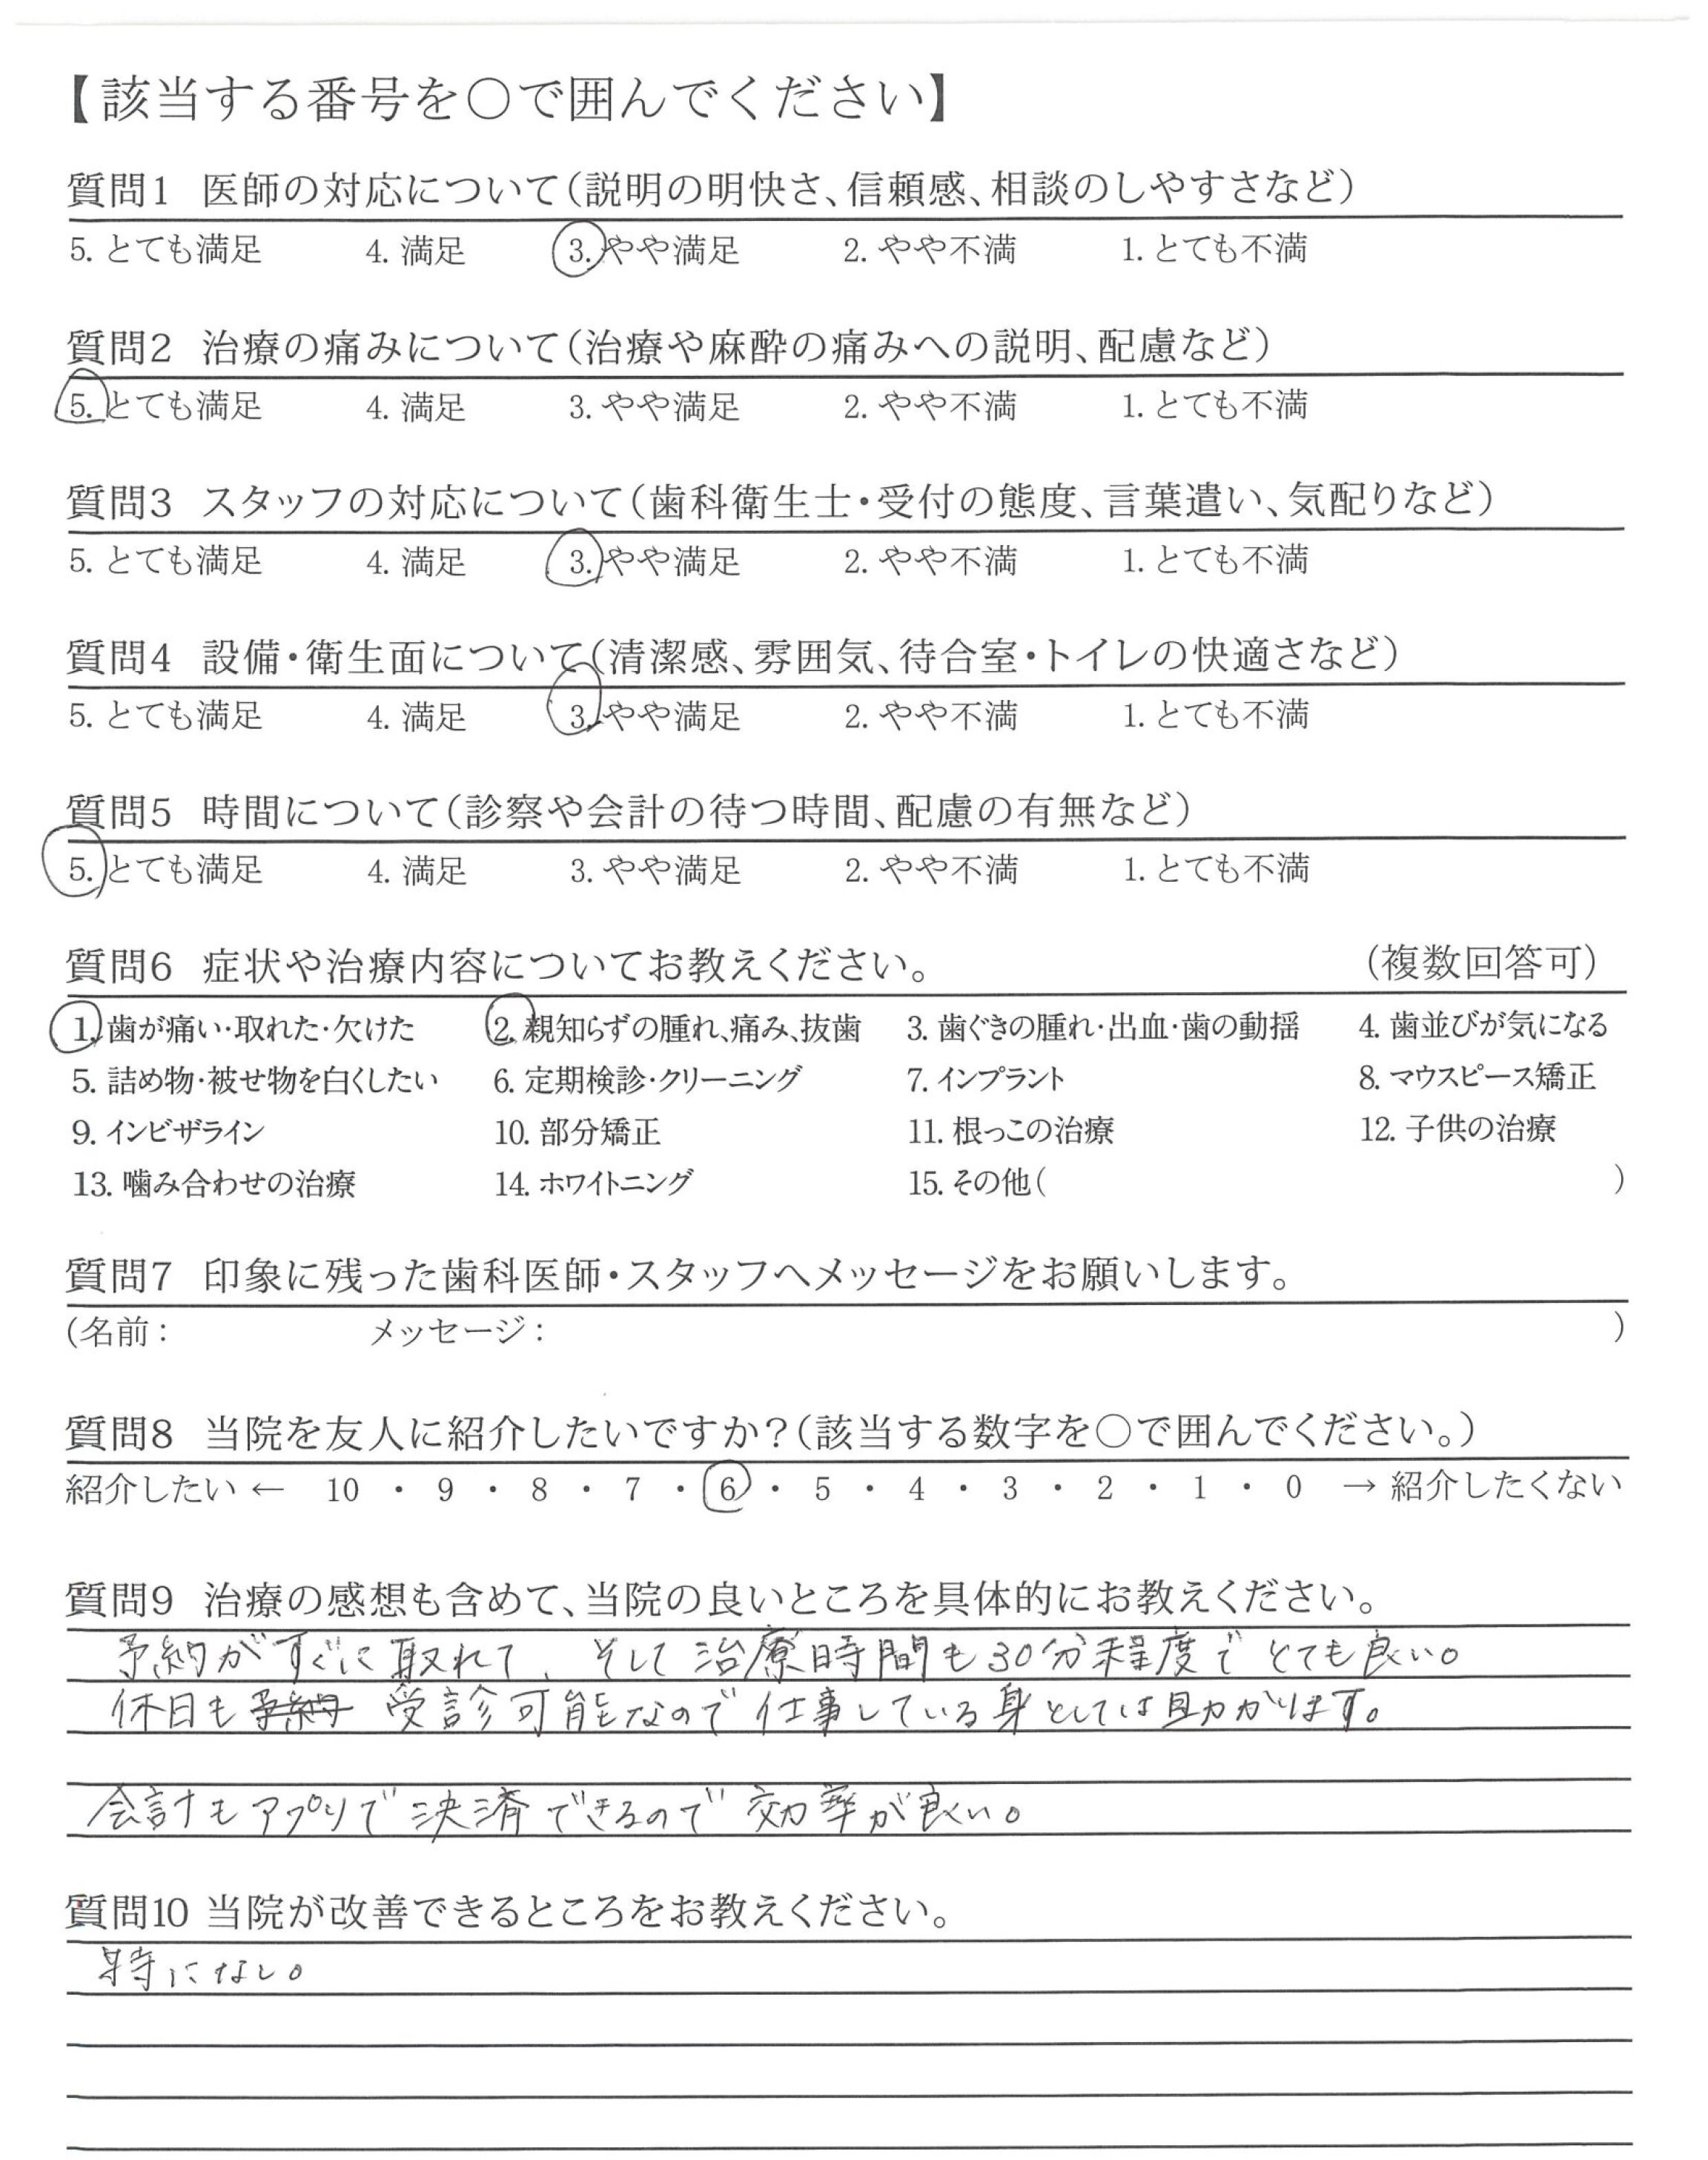 【該当する番号を○で囲んでください】
質問1 医師の対応について(説明の明快さ、信頼感、相談のしやすさなど)
5. とても満足 4. 満足 3. やや満足 2. やや不満 1. とても不満
質問2 治療の痛みについて(治療や麻酔の痛みへの説明、配慮など)
5. とても満足 4. 満足 3. やや満足 2. やや不満 1. とても不満
質問3 スタッフの対応について(歯科衛生士・受付の態度、言葉遣い、気配りなど)
5. とても満足 4. 満足 3. やや満足 2. やや不満 1. とても不満
質問4 設備・衛生面について(清潔感、雰囲気、待合室・トイレの快適さなど)
5. とても満足 4. 満足 3. やや満足 2. やや不満 1. とても不満
質問5 時間について(診察や会計の待つ時間、配慮の有無など)
5. とても満足 4. 満足 3. やや満足 2. やや不満 1. とても不満
質問6 症状や治療内容についてお教えください。 (複数回答可)
1. 歯が痛い・取れた・欠けた 2. 親知らずの腫れ、痛み、抜歯 3. 歯ぐきの腫れ・出血・歯の動揺 4. 歯並びが気になる
5. 詰め物・被せ物を白くしたい 6. 定期検診・クリーニング 7. インプラント 8. マウスピース矯正
9. インビザライン 10. 部分矯正 11. 根っこの治療 12. 子供の治療
13. 噛み合わせの治療 14. ホワイトニング 15. その他( )
質問7 印象に残った歯科医師・スタッフへメッセージをお願いします。
(名前: メッセージ: )
質問8 当院を友人に紹介したいですか?(該当する数字を○で囲んでください。)
紹介したい ← 10 ・ 9 ・ 8 ・ 7 ・ 6 ・ 5 ・ 4 ・ 3 ・ 2 ・ 1 ・ 0 → 紹介したくない
質問9 治療の感想も含めて、当院の良いところを具体的にお教えください。
予約がすぐに取れて、そして治療時間も30分程度でとても良い。
休日も予約 受診可能なので仕事している身としては助かります。
会計もアプリで決済できるので効率が良い。
質問10 当院が改善できるところをお教えください。
特にない。